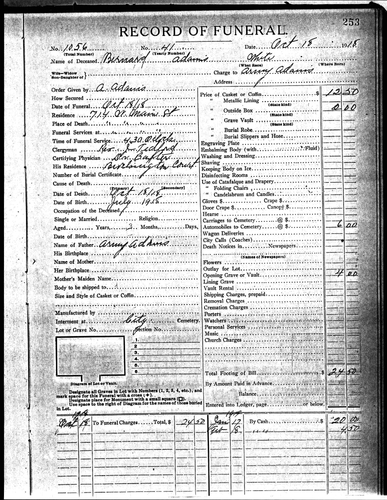 253
RECORD OF FUNERAL.
No. 1056 No. 41 Date, Oct 18 1918
(Total Number) (Yearly Number)
Name of Deceased Bernard Adams White
(What Race) (Where Born)
Charge to Army Adams
Address
Order Given by A. Adams
How Secured
Date of Funeral Oct 18/18
Residence 714 N. Main St
Place of Death
Funeral Services at
Time of Funeral Service 4:30 O'Clock
Clergyman Rev.
Certifying Physician Dr. Baxter
His Residence Court
Number of Burial Certificate
Cause of Death
Date of Death Oct 18/18
Date of Birth July 1915
Occupation of the Deceased
Single or Married Religion
Aged Years, 3 Months, Days
Date of Birth
Name of Father Army Adams
His Birthplace
Name of Mother
Her Birthplace
Mother's Maiden Name
Body to be shipped to
Size and Style of Casket or Coffin
Manufactured by
Interment in City Cemetery.
Lot or Grave No. Section No.
1
2
3
4
5
6
Diagram of Lot or Vault.
Designate all Graves in Lot with Numbers (1, 2, 3, 4, etc.), and
mark space for this Funeral with a cross (+).
Designate place for Monument with a small square
Use space to the right of Diagram for the names of those buried
in Lot.
Price of Casket or Coffin $ 12.50
Metallic Lining
(State kind)
Outside Box
(State kind)
Grave Vault
(State kind)
Burial Robe
Burial Slippers and Hose
Engraving Plate
Embalming Body (with Fluid)
Washing and Dressing
Shaving
Keeping Body on Ice
Disinfecting Rooms
Use of Catafalque and Drapery
Folding Chairs
Candelabrum and Candles
Gloves $ Crape $
Door Crape $ Canopy $
Hearse
Carriages to Cemetery @ $
Automobiles to Cemetery @ $ 6.00
Wagon Deliveries
City Calls (Coaches)
Death Notices in Newspapers
(Names of Newspapers)
Flowers
Outlay for Lot
Opening Grave or Vault 4.00
Lining Grave
Vault Rental
Shipping Charges, prepaid
Removal Charges
Cremation Charges
Porters
Watchers
Personal Services
Music
Church Charges
Total Footing of Bill $ 24.50
By Amount Paid in Advance
Balance
Entered into Ledger, page or below.
18 To Funeral Charges, Total, $ 24.50 Jan 17 By Cash $ 20.00
4.50